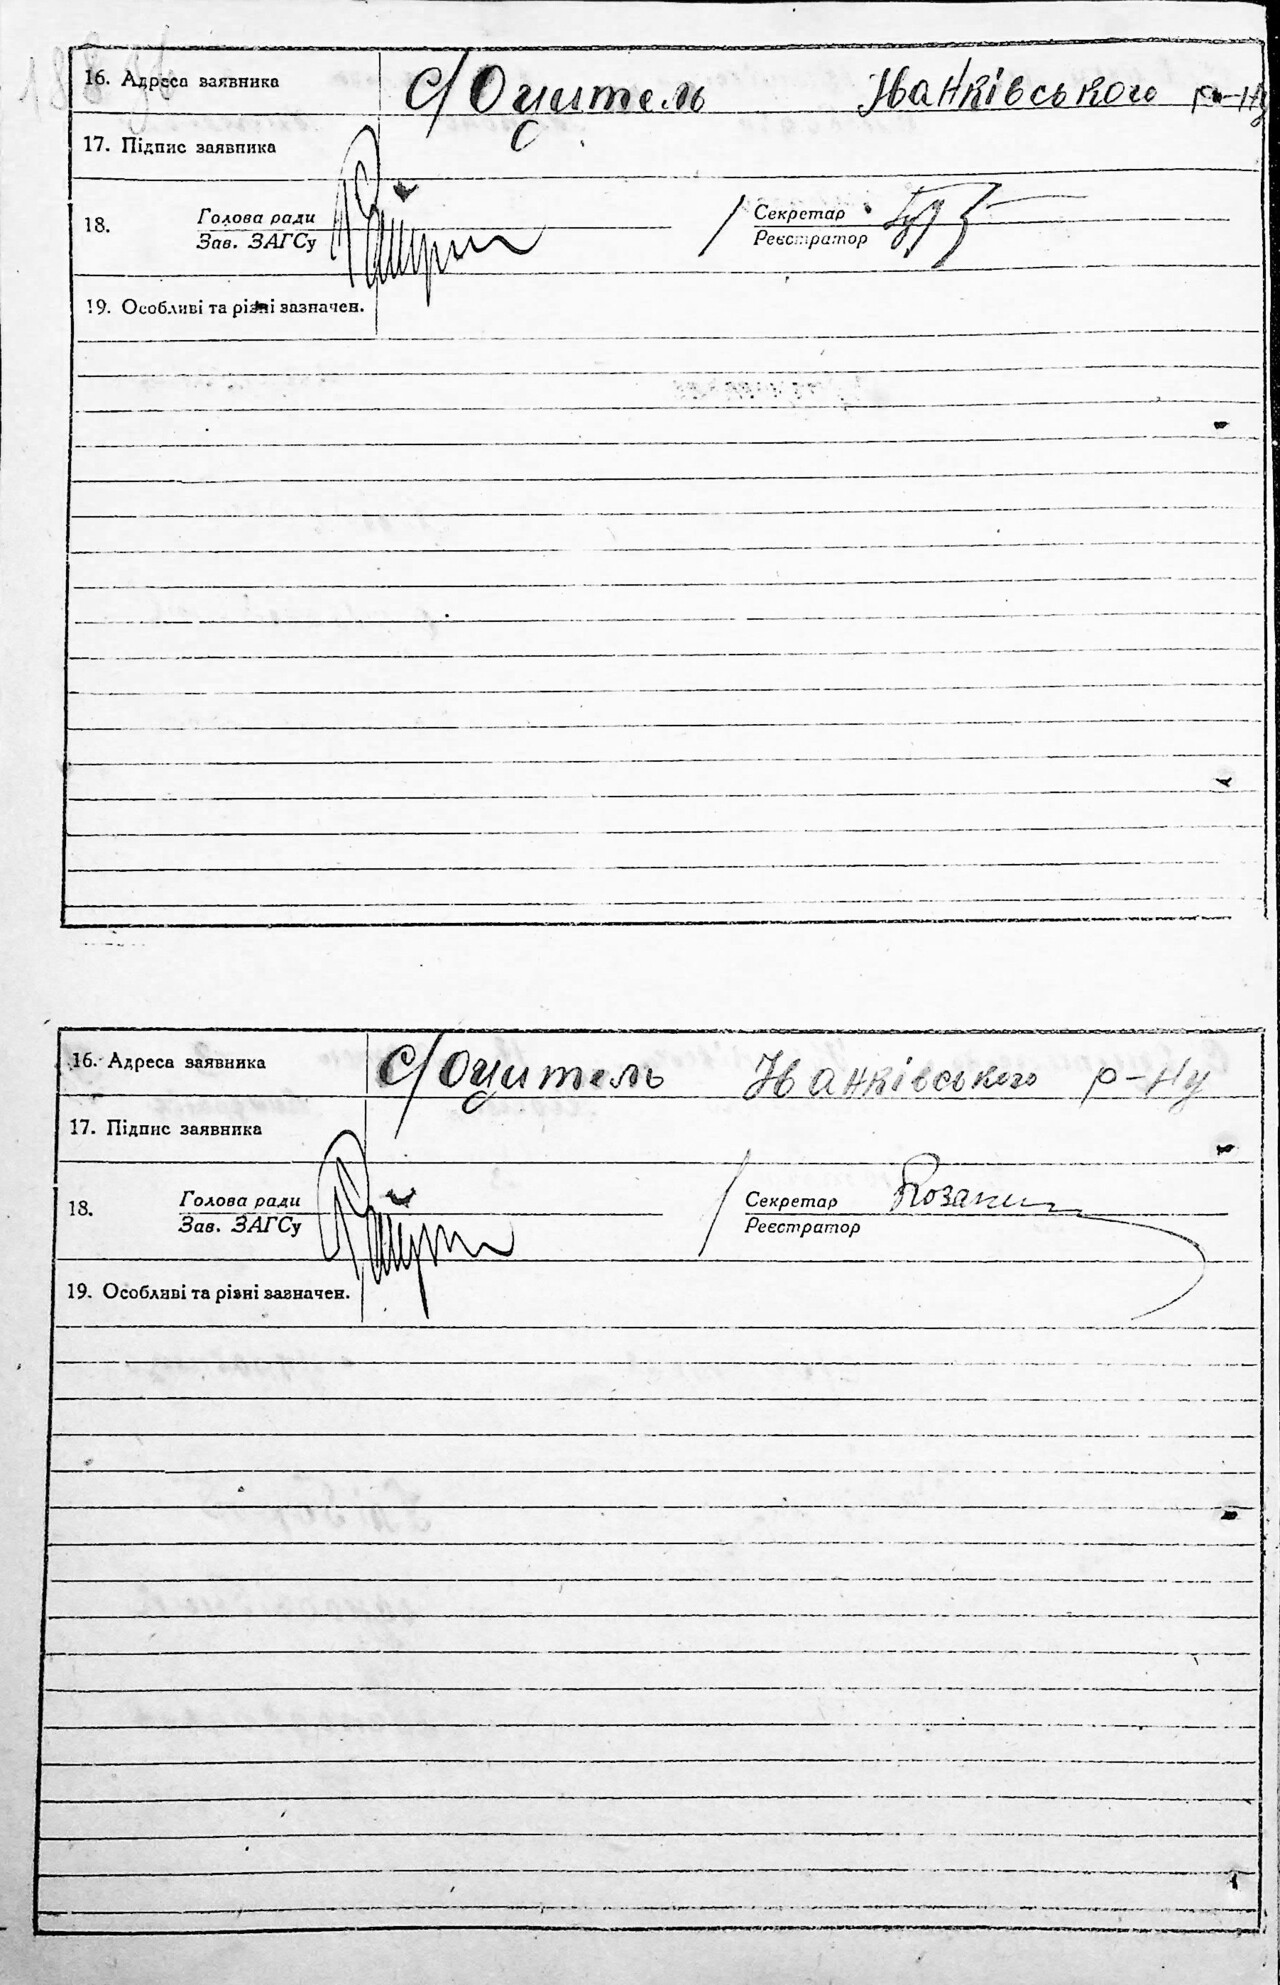 16. Адреса заявника с/Оцитель Іванківського р-ну
17. Підпис заявника
18. Голова ради Секретар
Зав. ЗАГСу Реєстратор
19. Особливі та різні зазначен.
16. Адреса заявника с/Оцитель Іванківського р-ну
17. Підпис заявника
18. Голова ради Секретар
Зав. ЗАГСу Реєстратор
19. Особливі та різні зазначен.